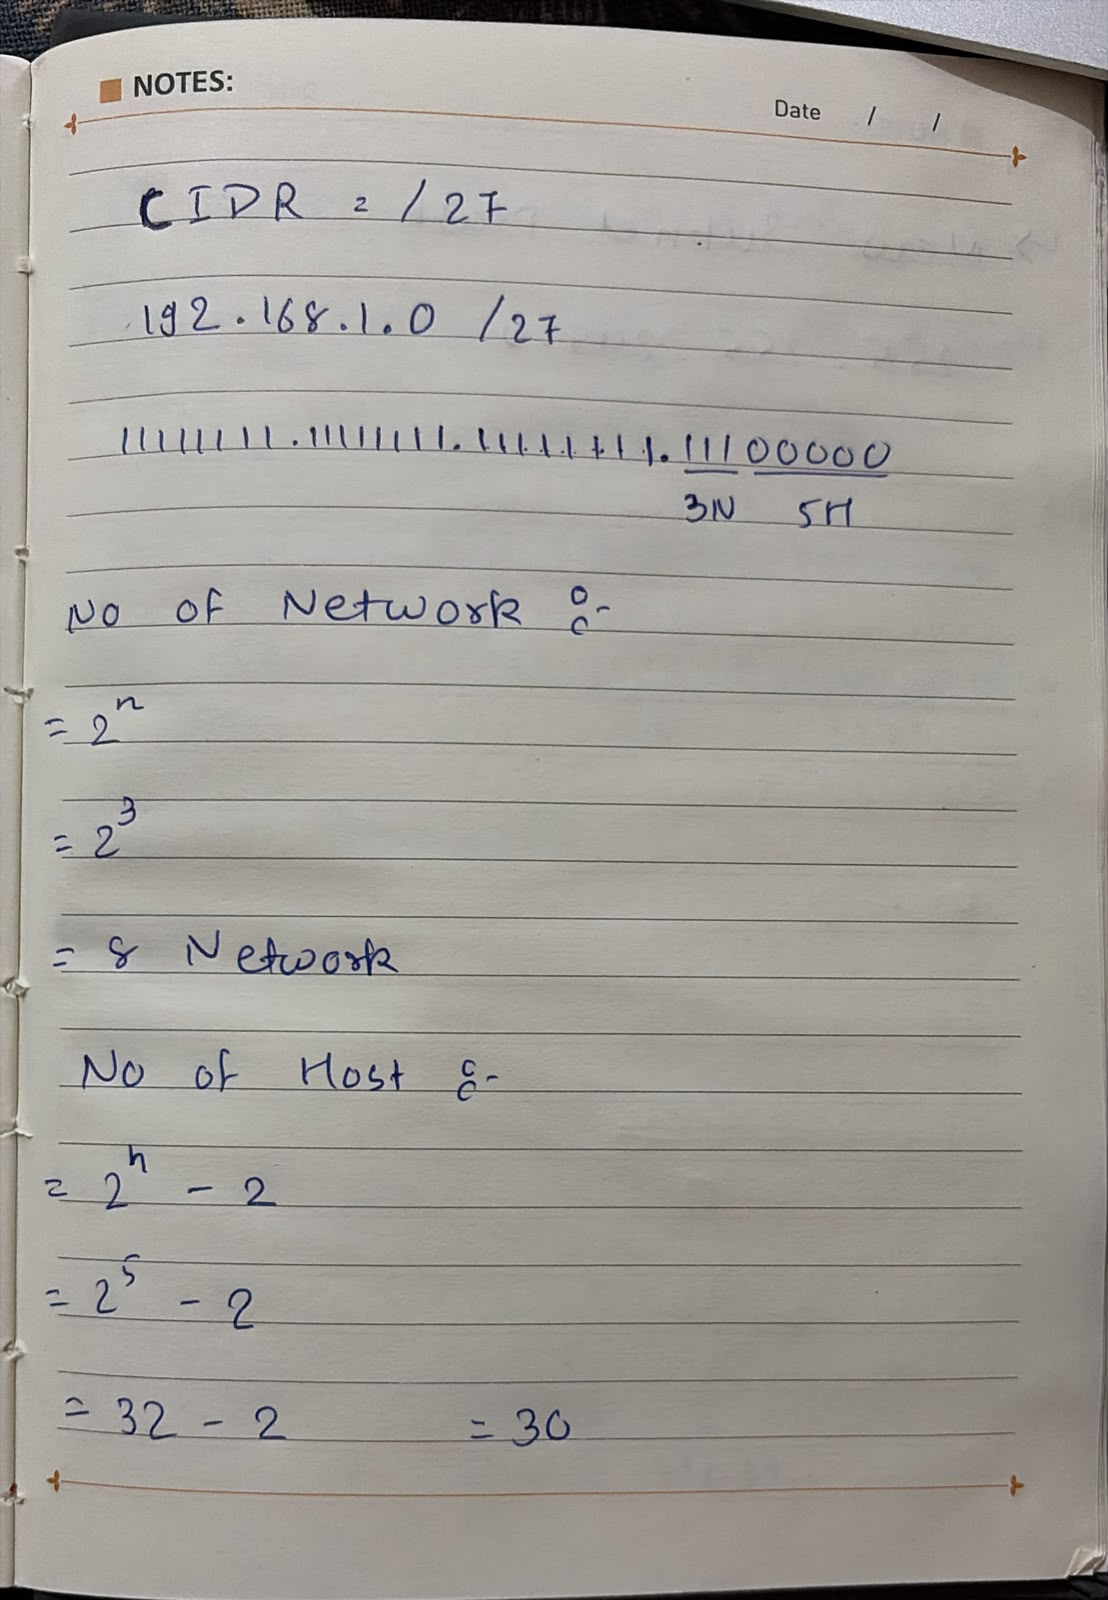 NOTES:
Date / /
CIDR = /27
192.168.1.0 /27
11111111.11111111.11111111.11100000
3N 5H
NO OF Network :-
= 2ⁿ
= 2³
= 8 Network
NO of Host :-
= 2ʰ - 2
= 2⁵ - 2
= 32 - 2 = 30